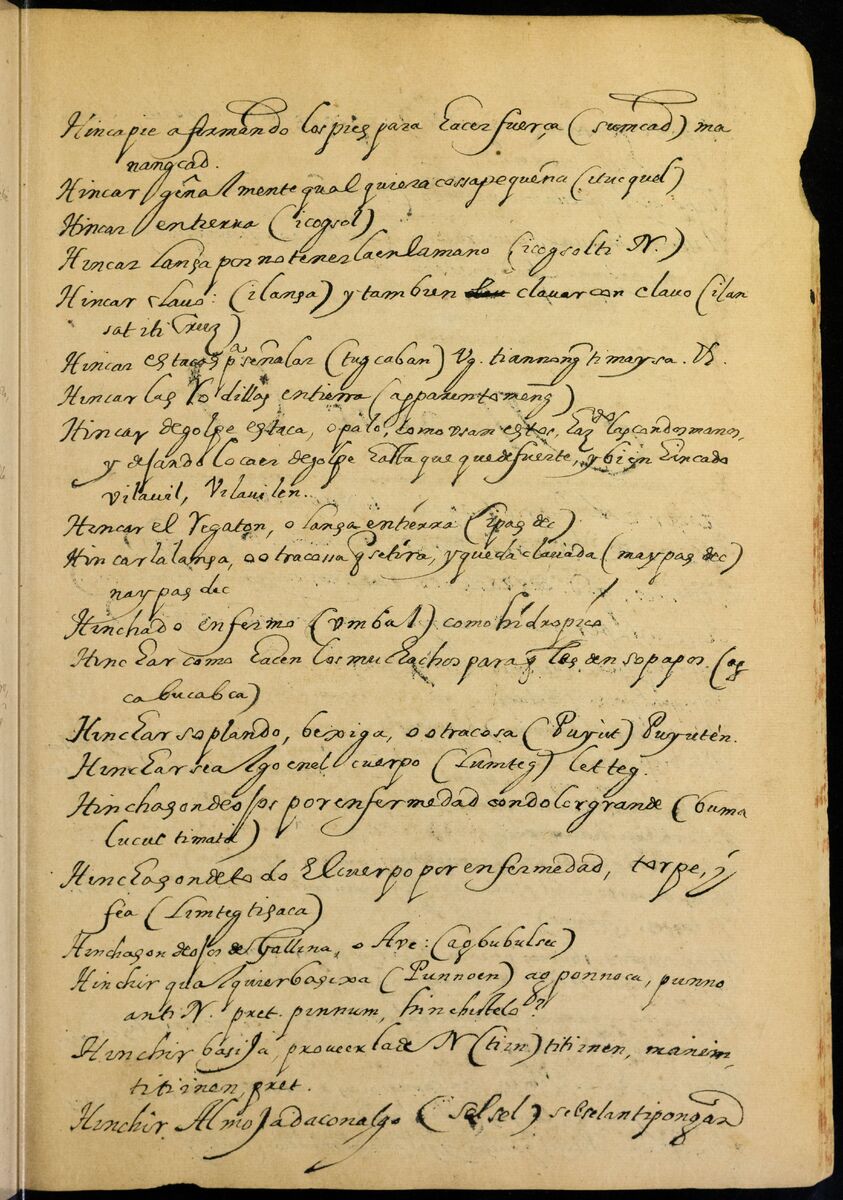 Hincapie afirmando los pies para hacer fuerça (sumcad) ma
nangcad.
Hincar gñalmente qualquiera cossa pequeña (itucquel)
Hincar en tierra (icogsol)
Hincar lança por no tenerla en la mano (icogsolti N.)
Hincar clavo: (ilansa) y tambien clavar con clavo (ilan
sat iti Cruz)
Hincar estacas pa señalar (tugcaban) Vg. tiannong ti maysa.
Hincar las Rodillas en tierra (agparentomeng)
Hincar de golpe estaca, o palo, como usan estos, haz.do las con dos manos,
y dejando lo caer de golpe hasta que quede fuerte, y bien hincado
vilavil, Vilavilen.
Hincar el Regaton, o lança en tierra (ipasdec)
Hincar la lança, o otra cossa q se tira, y queda clavada (maypasdec)
naypasdec
Hinchado enfermo (vmbal) como hidropico
Hinchar como hacen los muchachos para q les den sopapos. (ag
cabucabca)
Hinchar soplando, bexiga, o otra cosa (Puyut) Puyutén.
Hincharse algo en el cuerpo (Lumteg) letteg.
Hinchaçon de ojos por enfermedad con dolor grande (buma
lucuc ti mata)
Hinchaçon de todo El cuerpo por enfermedad, torpe, y
fea (Limteg tisaca)
Hinchaçon de ojos de Gallina, o Ave: (agbubulsec)
Hinchir qualquier basixa (Punnoen) agponnoca, punno
anti N. pret. pinnum, hinchistelo
Hinchir basija, proveerla de N (tim) titimen, manem,
titinen, pret.
Hinchir Almojada con algo (selsel) selselanti pongan